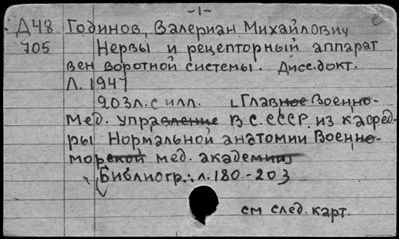 -1-
Д48 Годинов, Валериан Михайлович
705 Нервы и рецепторный аппарат
вен воротной системы. Дисс. докт.
Л. 1947
203 л. с илл. (Главное Военно-
мед. управление ВС СССР. из кафед-
ры Нормальной анатомии Военно-
морской мед. академии)
Библиогр.: л. 180-203
см след. карт.